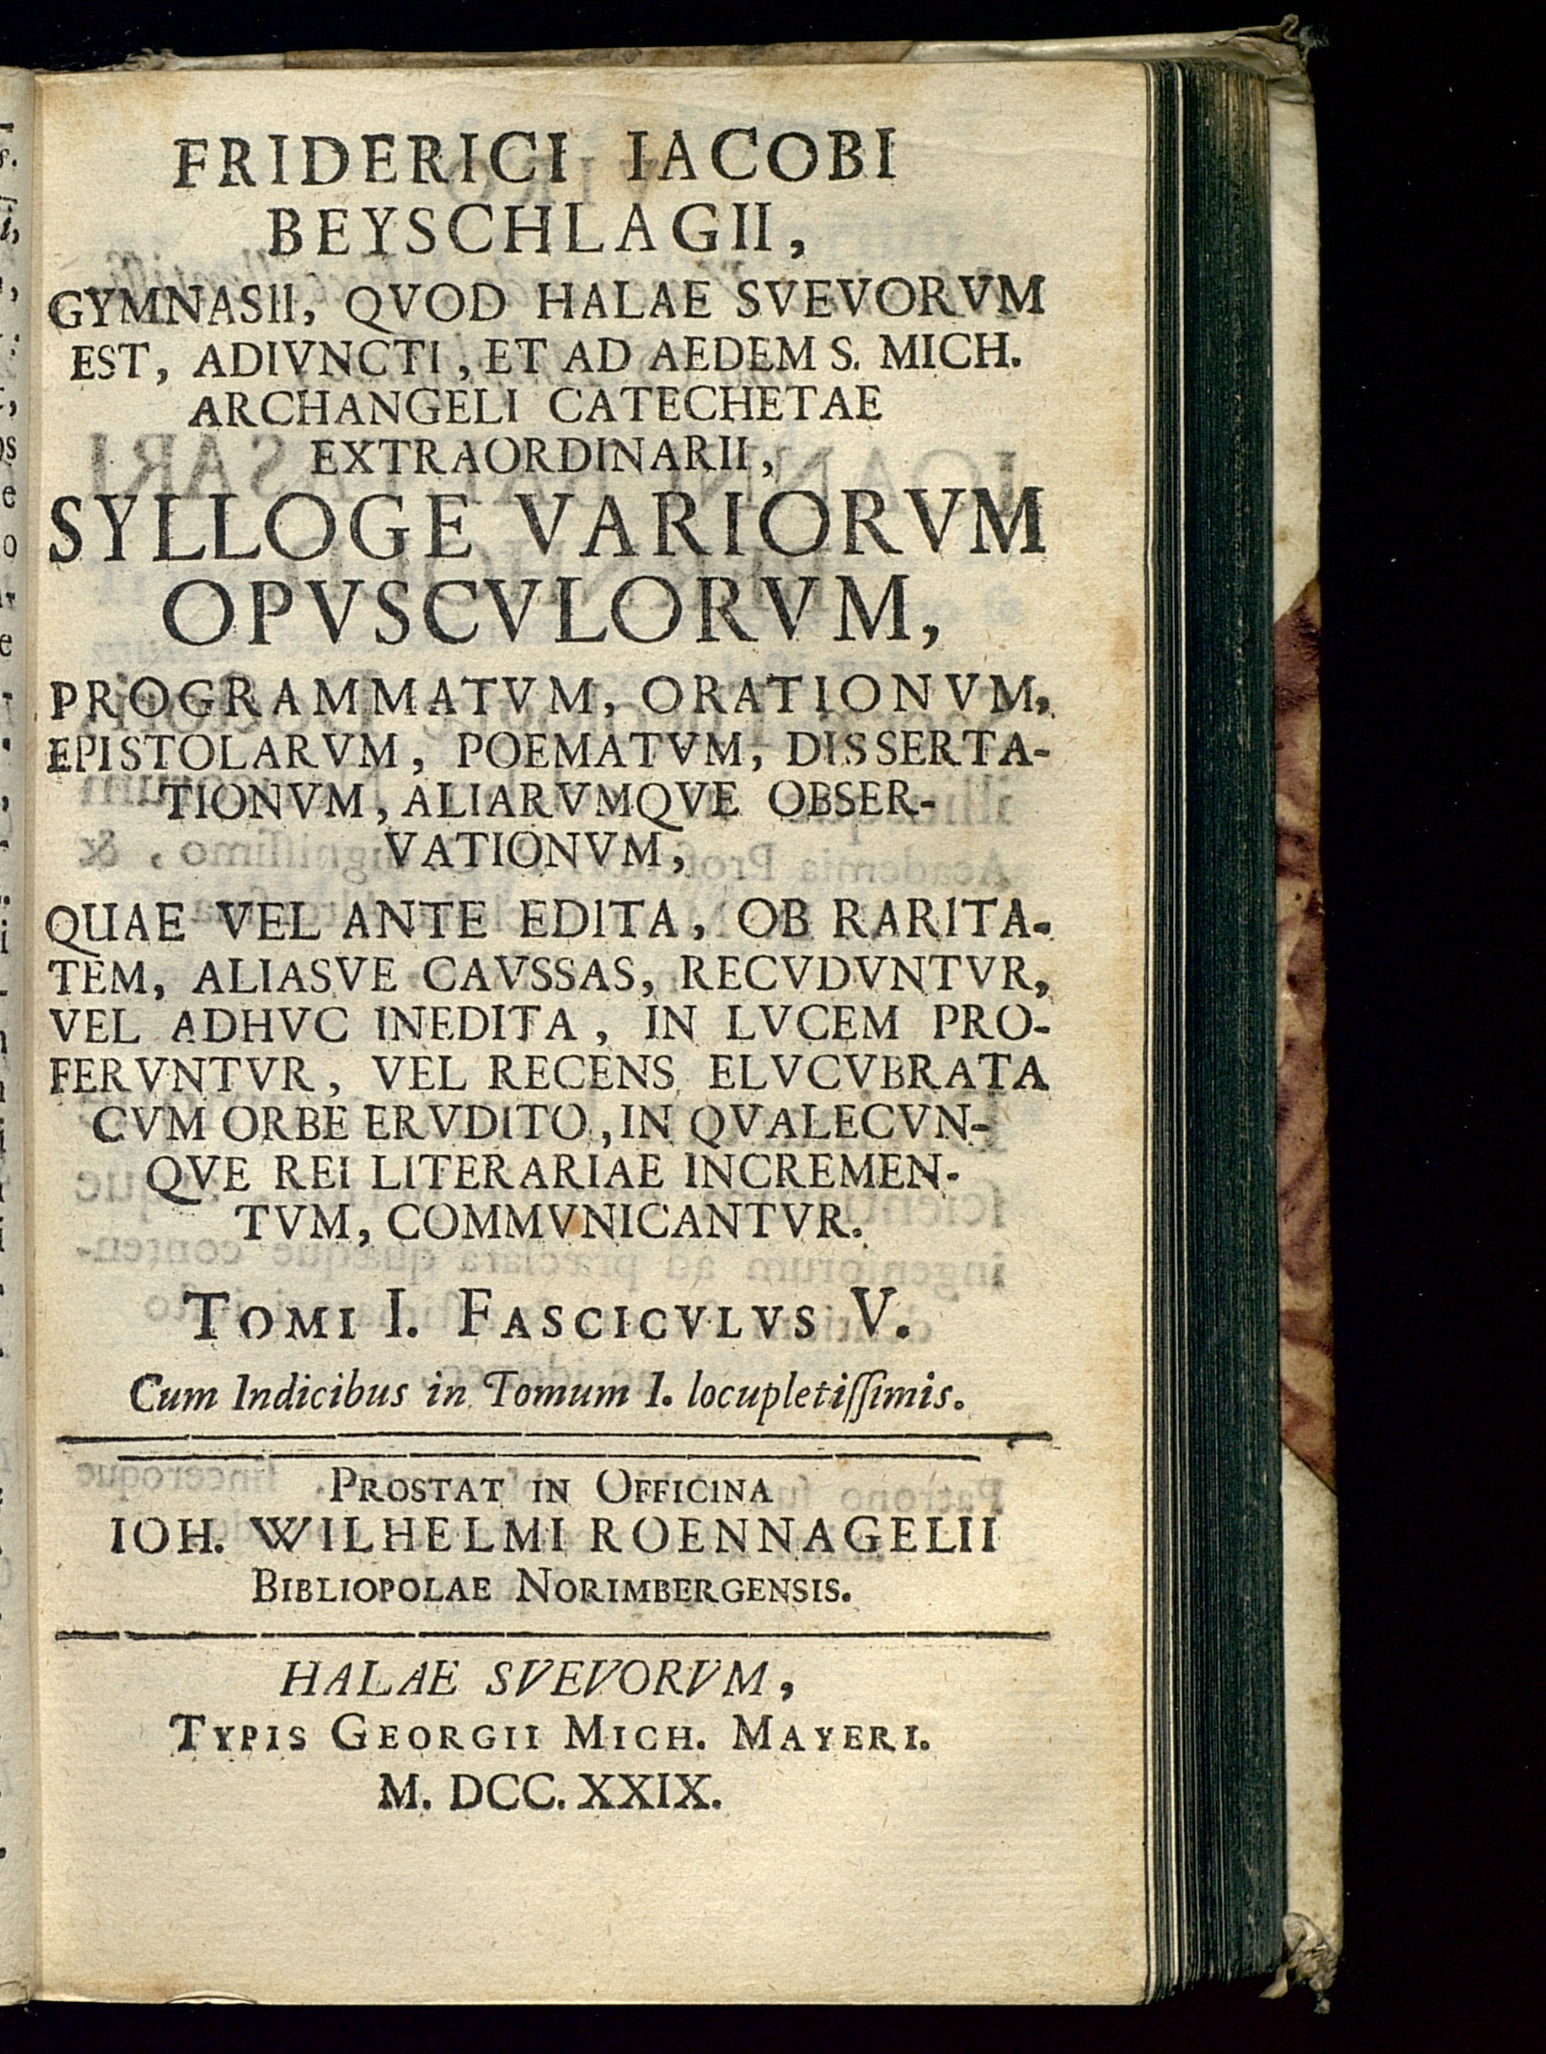 FRIDERICI IACOBI
BEYSCHLAGII,
GYMNASII, QVOD HALAE SVEVORVM
EST, ADIVNCTI, ET AD AEDEM S. MICH.
ARCHANGELI CATECHETAE
EXTRAORDINARII,
SYLLOGE VARIORVM
OPVSCVLORVM,
PROGRAMMATVM, ORATIONVM,
EPISTOLARVM, POEMATVM, DISSERTA-
TIONVM, ALIARVMQVE OBSER-
VATIONVM,
QUAE VEL ANTE EDITA, OB RARITA-
TEM, ALIASVE CAVSSAS, RECVDVNTVR,
VEL ADHVC INEDITA, IN LVCEM PRO-
FERVNTVR, VEL RECENS ELVCVBRATA
CVM ORBE ERVDITO, IN QVALECVN-
QVE REI LITERARIAE INCREMEN-
TVM, COMMVNICANTVR.
TOMI I. FASCICVLVS V.
Cum Indicibus in Tomum I. locupletiſſimis.
PROSTAT IN OFFICINA
IOH. WILHELMI ROENNAGELII
BIBLIOPOLAE NORIMBERGENSIS.
HALAE SVEVORVM,
TYPIS GEORGII MICH. MAYERI.
M. DCC. XXIX.